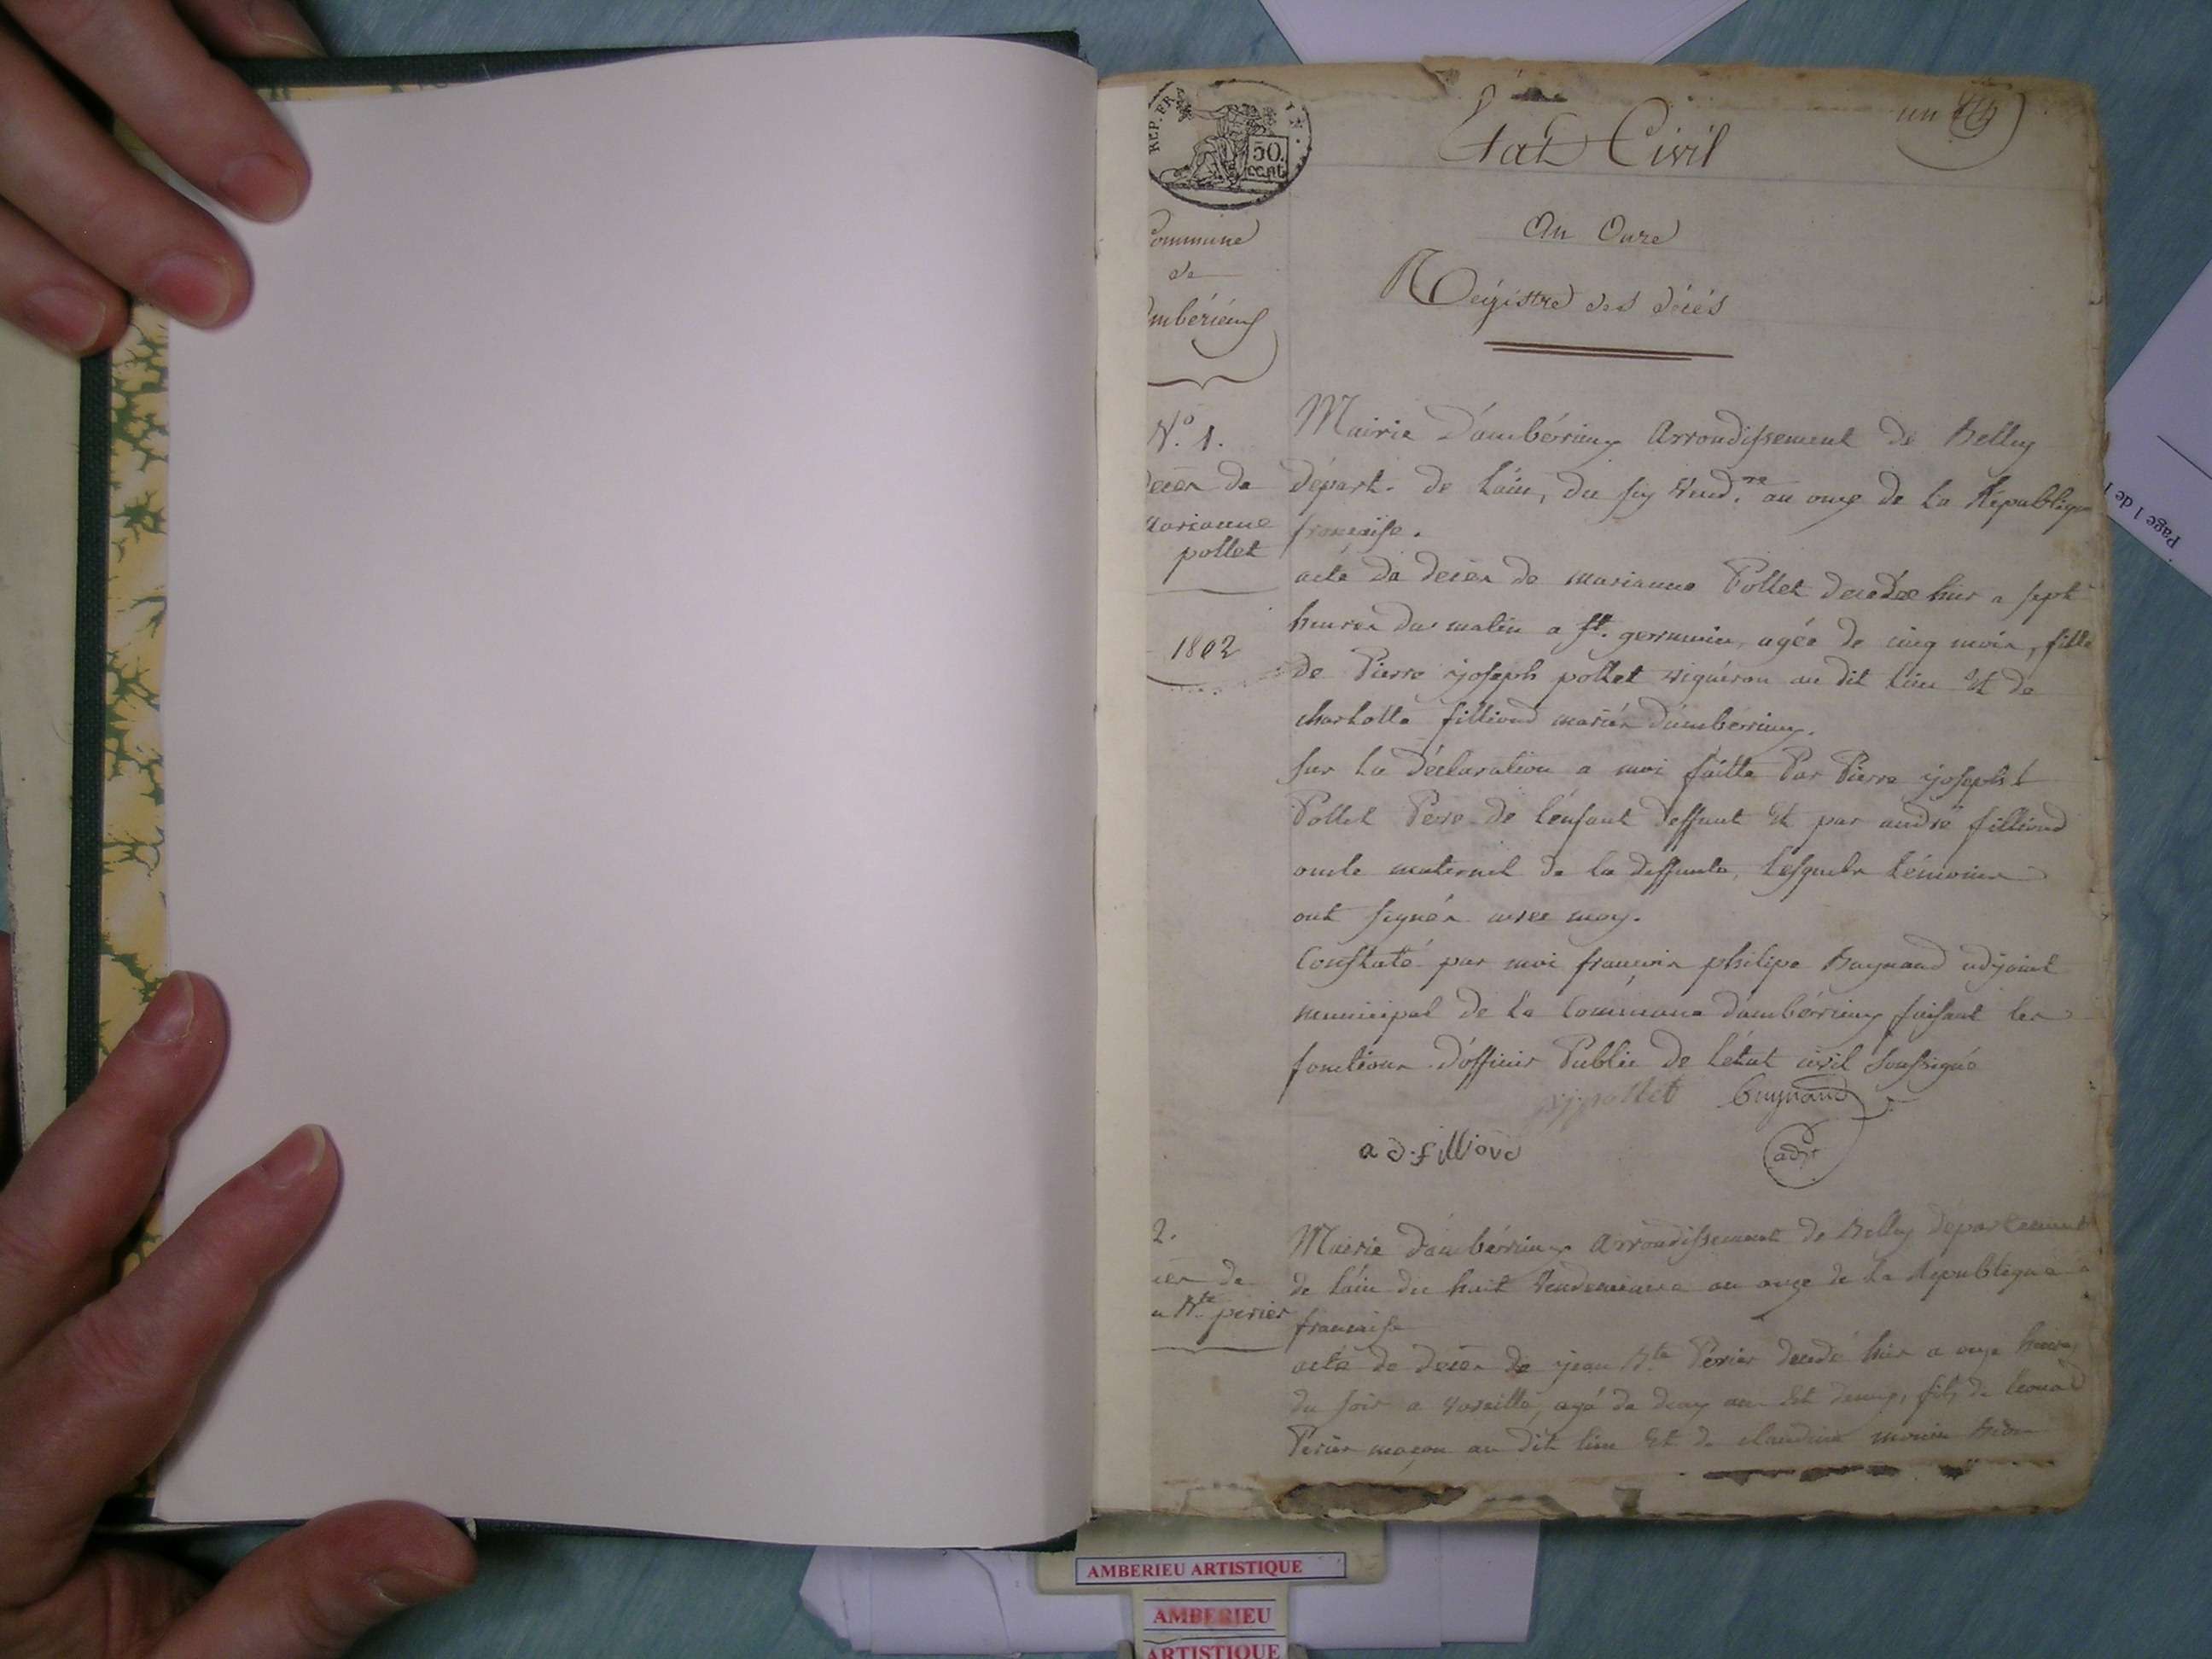 REP. FRA
50.
cent.
Etat Civil
un
Commune
de
Ambérieux
An Onze
Régistre des décés
N.º 1.
Decés de
marianne
pollet
1802
Mairie D'ambérieux Arrondissement de Belley
départ. de L'ain, du six Vend.re an onze de La République
française.
acte de decés de marianne Pollet decedée hier a sept
heures du matin a St. germain, agée de cinq mois, fille
de Pierre joseph pollet vignéron au dit lieu Et de
charlotte filliond mariés d'ambérieux.
Sur La déclaration a moi faitte Par Pierre joseph
Pollet Pere de l'enfant deffunt Et par andré filliond
oncle maternel de la deffunte, Lesquels témoins
ont signés avec moy.
Constaté par moi francois philipe Buynand adjoint
municipal de La Commune d'ambérieux faisant les
fonctions d'officier Public de L'état civil soussigné
pjpollet Buynand
adf filliond
adjt
2.
cés de
n Bte perier
Mairie d'ambérieux Arrondissement de Belley département
de L'ain du huit Vendemiaire an onze de La République
française
acte de decés de jean Bte Perier decedé hier a onze heures
du soir a Vareille, agé de deux ans Et demy, fils de
Perier maçon au dit lieu Et de claudine monin
Page 1 de 1
AMBERIEU ARTISTIQUE
AMBERIEU
ARTISTIQUE